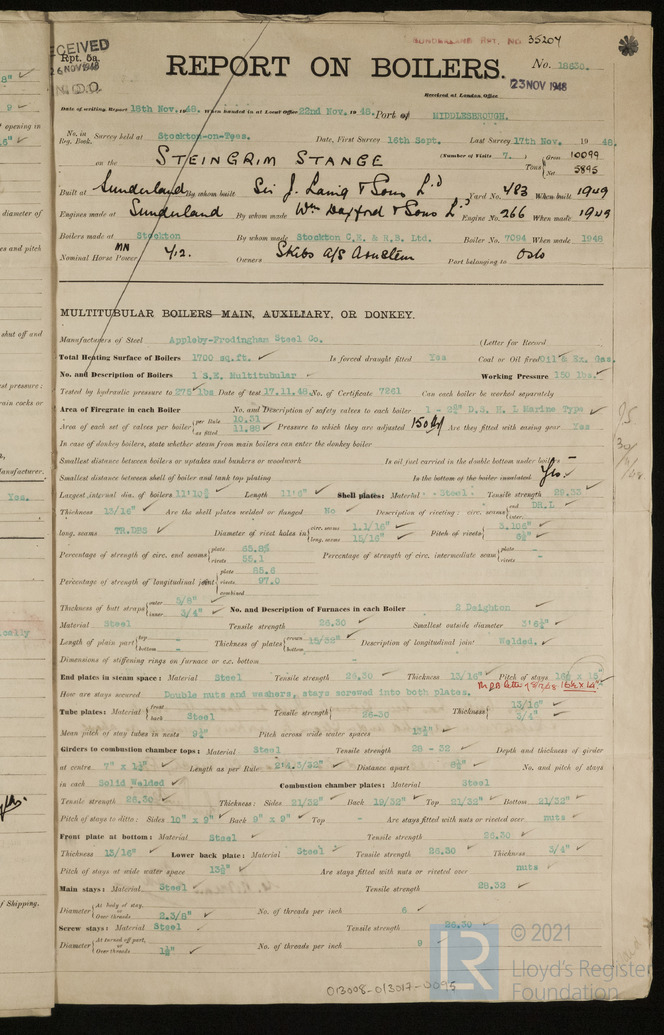 RECEIVED
26 NOV 1948
N.D.O.
Rpt. 5a.
SUNDERLAND RPT. NO. 35204
REPORT ON BOILERS.
No. 18630.
Received at London Office
23 NOV 1948
Date of writing Report 18th Nov. 1948. When handed in at Local Office 22nd Nov. 1948. Port of MIDDLESBROUGH.
No. in Reg. Book. Survey held at Stockton-on-Tees. Date, First Survey 16th Sept. Last Survey 17th Nov. 1948.
on the STEINGRIM STANGE (Number of Visits 7.) Tons Gross 10099 Net 5895
Built at Sunderland By whom built Sir J. Laing & Sons Ld Yard No. 483 When built 1949
Engines made at Sunderland By whom made Wm Doxford & Sons Ld Engine No. 266 When made 1949
Boilers made at Stockton By whom made Stockton C.E. & R.B. Ltd. Boiler No. 7094 When made 1948
Nominal Horse Power MN 412. Owners Skibs A/S Port belonging to Oslo
MULTITUBULAR BOILERS—MAIN, AUXILIARY, OR DONKEY.
Manufacturers of Steel Appleby-Frodingham Steel Co. (Letter for Record
Total Heating Surface of Boilers 1700 sq.ft. Is forced draught fitted Yes Coal or Oil fired Oil & Ex. Gas.
No. and Description of Boilers 1 S.E. Multitubular Working Pressure 150 lbs.
Tested by hydraulic pressure to 275 lbs Date of test 17.11.48. No. of Certificate 7261 Can each boiler be worked separately
Area of Firegrate in each Boiler No. and Description of safety valves to each boiler D.S. H.L Marine Type
Area of each set of valves per boiler per Rule 10.51 as fitted 11.88 Pressure to which they are adjusted 150 lbs Are they fitted with easing gear Yes
In case of donkey boilers, state whether steam from main boilers can enter the donkey boiler
Smallest distance between boilers or uptakes and bunkers or woodwork Is oil fuel carried in the double bottom under boilers
Smallest distance between shell of boiler and tank top plating Is the bottom of the boiler insulated Yes.
Largest internal dia. of boilers Length 11'6" Shell plates: Material Steel Tensile strength
Thickness 13/16" Are the shell plates welded or flanged No Description of riveting: circ. seams end DR.L
long. seams TR.DBS Diameter of rivet holes in circ. seams 1.1/16" long. seams 15/16" Pitch of rivets
Percentage of strength of circ. end seams plate rivets 55.1 Percentage of strength of circ. intermediate seam plate rivets
Percentage of strength of longitudinal joint plate 85.6 rivets 97.0 combined
Thickness of butt straps outer 5/8" inner 3/4" No. and Description of Furnaces in each Boiler 2 Deighton
Material Steel Tensile strength 26.30 Smallest outside diameter
Length of plain part top bottom Thickness of plates crown bottom 15/32" Description of longitudinal joint Welded.
Dimensions of stiffening rings on furnace or c.c. bottom -
End plates in steam space: Material Steel Tensile strength 26.30 Thickness 13/16" Pitch of stays
How are stays secured Double nuts and washers, stays screwed into both plates.
Tube plates: Material front back Steel Tensile strength 26-30 Thickness 13/16" 3/4"
Mean pitch of stay tubes in nests Pitch across wide water spaces
Girders to combustion chamber tops: Material Steel Tensile strength 28 - 32 Depth and thickness of girder
at centre Length as per Rule 2'4.3/32" Distance apart No. and pitch of stays
in each Solid Welded Combustion chamber plates: Material Steel
Tensile strength 26.30 Thickness: Sides 21/32" Back 19/32" Top 21/32" Bottom 21/32"
Pitch of stays to ditto: Sides 10" x 9" Back 9" x 9" Top - Are stays fitted with nuts or riveted over nuts
Front plate at bottom: Material Steel Tensile strength 26.30
Thickness 13/16" Lower back plate: Material Steel Tensile strength 26.30 Thickness 3/4"
Pitch of stays at wide water space Are stays fitted with nuts or riveted over nuts
Main stays: Material Steel Tensile strength 28.32
Diameter At body of stay, or Over threads 2.3/8" No. of threads per inch 6
Screw stays: Material Steel Tensile strength 26.30
Diameter At turned off part, or Over threads No. of threads per inch 9
013008-013017-0095
LR © 2021
Lloyd's Register
Foundation